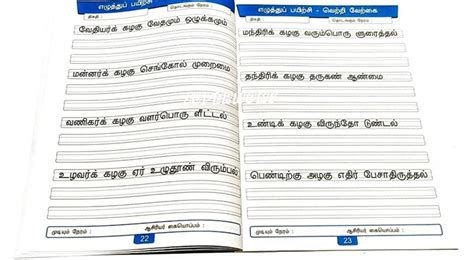 எழுத்துப் பயிற்சி
திகதி : தொடங்கும் நேரம் :
வேதியர்க் கழகு வேதமும் ஒழுக்கமும்
மன்னர்க் கழகு செங்கோல் முறைமை
வணிகர்க் கழகு வளர்பொரு ளீட்டல்
உழவர்க் கழகு ஏர் உழுதூண் விரும்பல்
முடியும் நேரம் : ஆசிரியர் கையொப்பம் :
22
எழுத்துப் பயிற்சி - வெற்றி வேற்கை
திகதி : தொடங்கும் நேரம் :
மந்திரிக் கழகு வரும்பொரு ளுரைத்தல்
தந்திரிக் கழகு தருகண் ஆண்மை
உண்டிக் கழகு விருந்தோ டுண்டல்
பெண்டிற்கு அழகு எதிர் பேசாதிருத்தல்
முடியும் நேரம் : ஆசிரியர் கையொப்பம் :
23